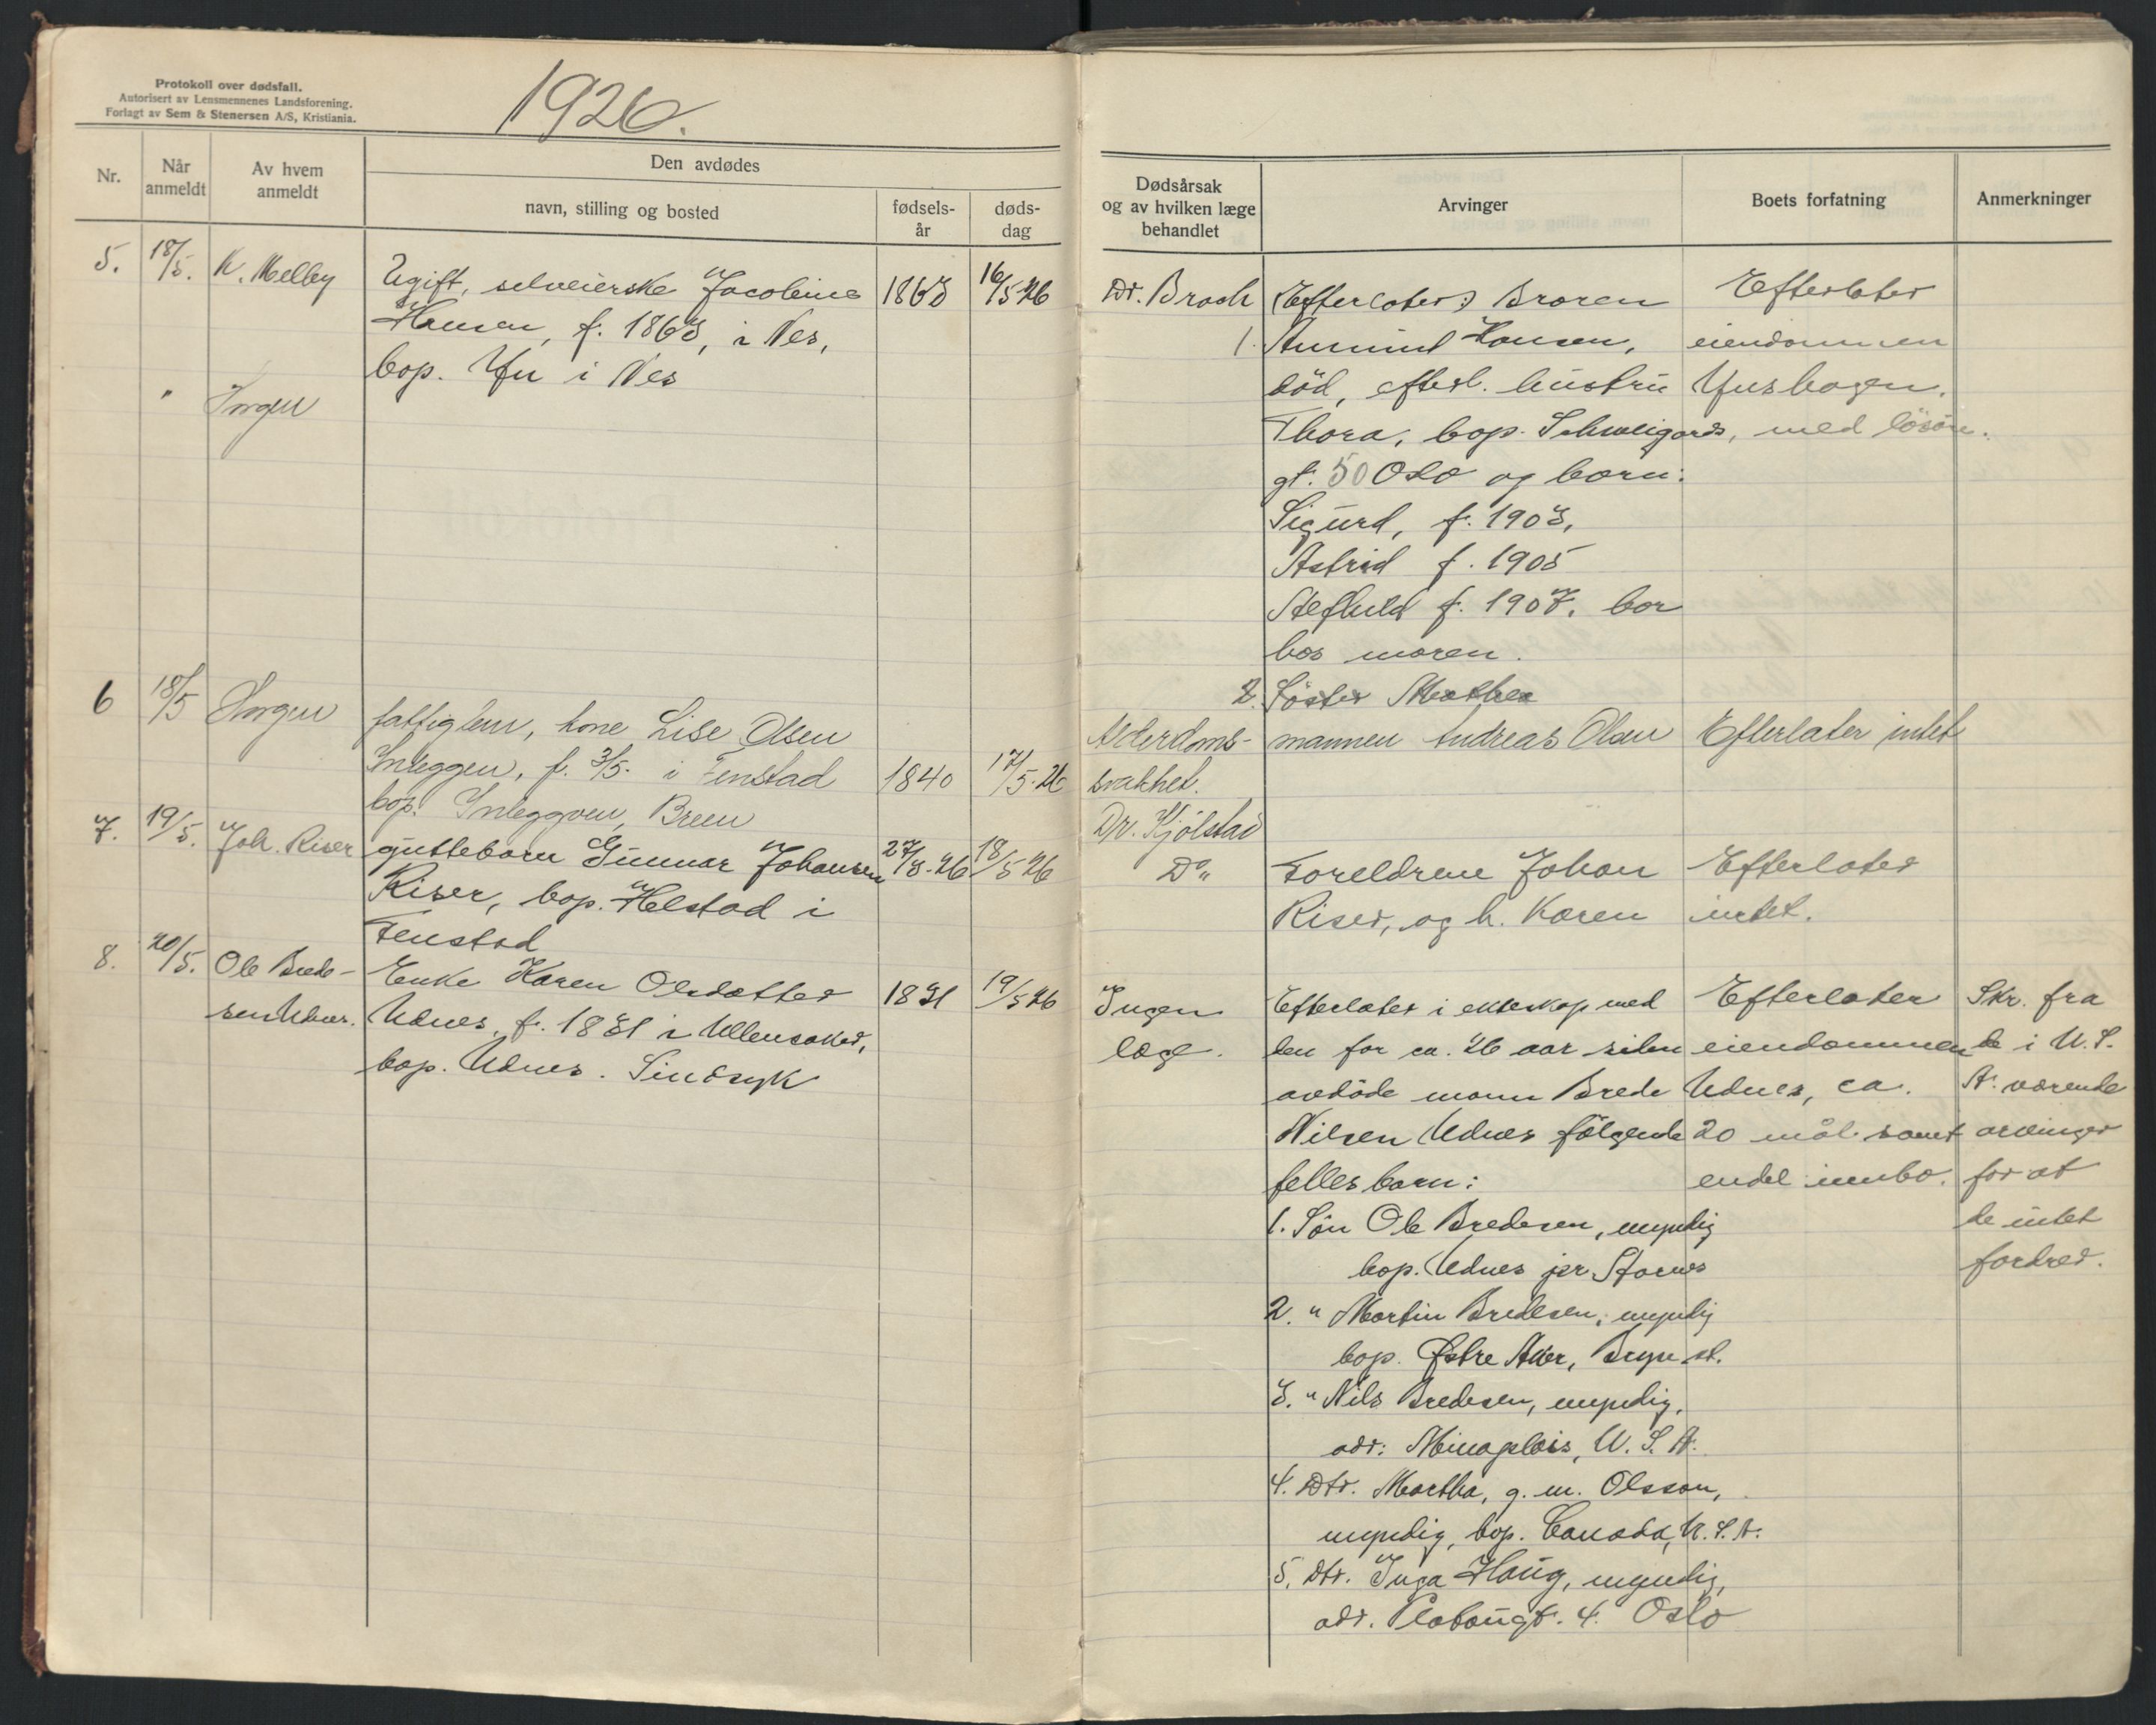 Protokoll over dødsfall.
Autorisert av Lensmennenes Landsforening.
Forlagt av Sem & Stenersen A/S, Kristiania.
1926.
Nr.
Når anmeldt
Av hvem anmeldt
Den avdødes
navn, stilling og bosted
fødsels-år
døds-dag
Dødsårsak
og av hvilken læge
behandlet
Arvinger
Boets forfatning
Anmerkninger
5. 18/5. K. Melby
Ugift, selveierske Jacobine
Hansen, f. 1863, i Nes,
bop. i Nes
1863
16/5 26
Dr. Broch
Efterlater: Broren
1. Hansen,
död, efterl. hustru
Thora, bop. Schweigards,
gt. 50 Oslo og barn:
Sigurd, f. 1903,
Astrid f. 1905
f. 1907, bor
hos moren.
2. Søster Mathea
Efterlater
eiendommen
med løsøre.
"
6 18/5
fattiglem, kone Lise Olsen
f. 3/5. i Fenstad
bop. Breen
1840
17/5. 26
Alderdoms-
svakhet.
Dr. Kjølstad
mannen Andreas Olsen
Efterlater intet
7. 19/5. Joh. Riser
guttebarn Gunnar Johansen
Riser, bop. Helstad i
Fenstad
27/3. 26
18/5 26
Do "
Foreldrene Johan
Riser, og h. Karen
Efterlater
intet.
8. 20/5. Ole Brede-
sen Udnes.
Enke Karen Olsdatter
Udnes, f. 1831 i Ullensaker,
bop. Udnes. Sindsyk
1831
19/5 26
Ingen
læge.
Efterlater i ekteskap med
den for ca. 26 aar siden
avdöde mann Brede
Nilsen Udnes fölgende
felles barn:
1. Sön Ole Bredesen, myndig
bop. Udnes pr Aarnes
2. " Martin Bredesen, myndig
bop. Østre Aker, Bryn st.
3. " Nils Bredesen, myndig,
adr: Minaplois, U. S. A.
4. Dtr. Martha, g. m. Olsson,
myndig, bop. Canada, U. S. A.
5. Dtr. Inga Haug, myndig,
adr. 4. Oslo
Efterlater
eiendommen
Udnes, ca.
20 mål samt
endel innbo.
Skr. fra
de i U. S.
A. værende
arvinger
for at
de intet
fordrer.